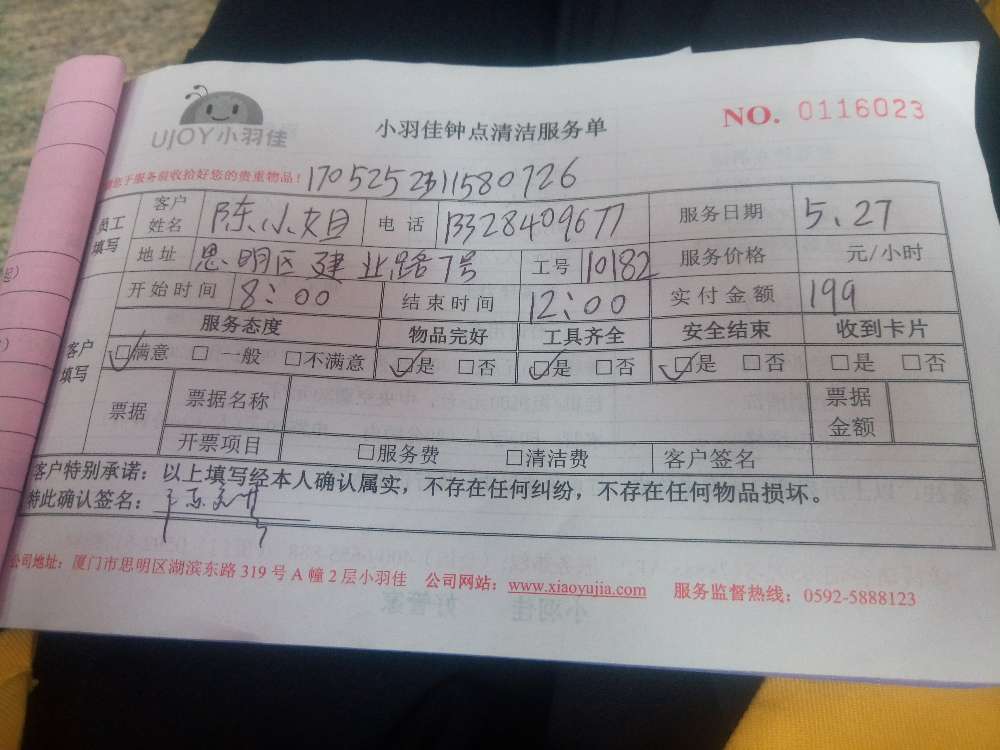 UJOY小羽佳
小羽佳钟点清洁服务单
NO. 0116023
于服务前收拾好您的贵重物品！ 1705252311580726
员工填写 客户姓名 陈小姐 电话 13328409677 服务日期 5.27
地址 思明区建业路7号 工号 10182 服务价格 元/小时
开始时间 8:00 结束时间 12:00 实付金额 199
客户填写 服务态度 物品完好 工具齐全 安全结束 收到卡片
☑满意 □一般 □不满意 ☑是 □否 ☑是 □否 ☑是 □否 □是 □否
票据 票据名称 票据金额
开票项目 □服务费 □清洁费 客户签名
客户特别承诺：以上填写经本人确认属实，不存在任何纠纷，不存在任何物品损坏。
特此确认签名：
公司地址：厦门市思明区湖滨东路 319 号 A 幢 2 层小羽佳 公司网站：www.xiaoyujia.com 服务监督热线：0592-5888123